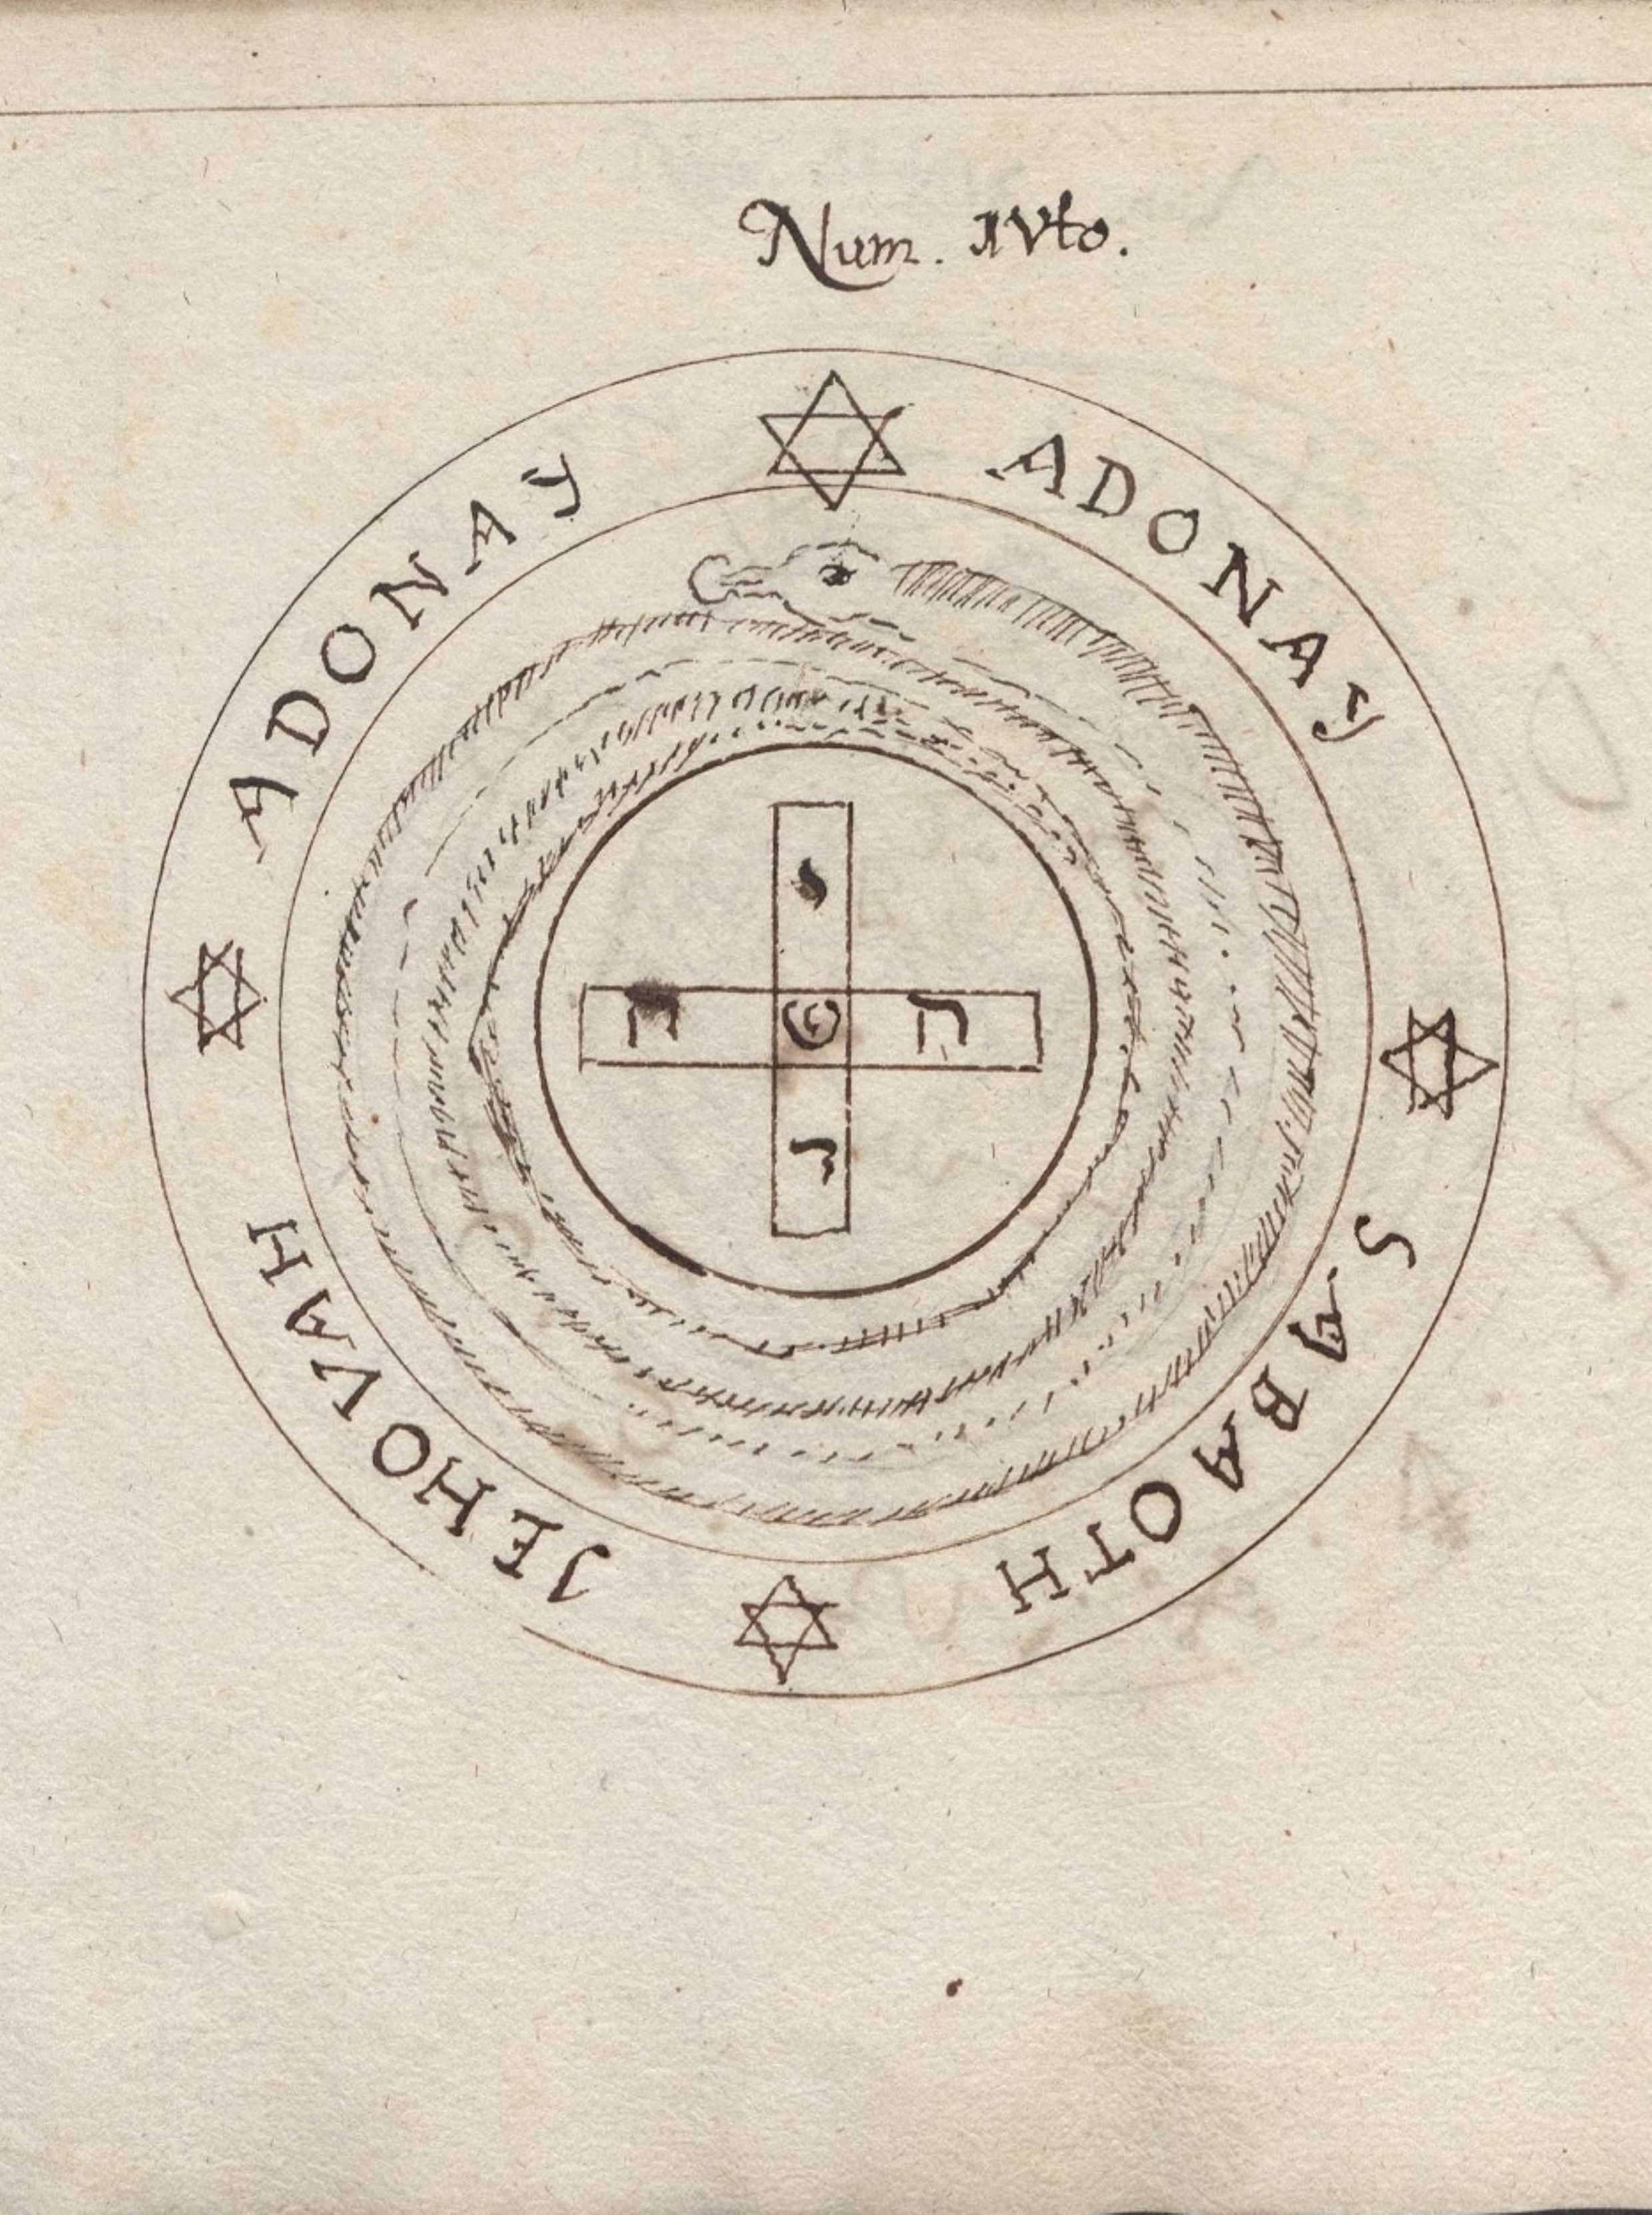 Num. IVto.
ADONAY
ADONAY
SABAOTH
JEHOVAH
י
ה
ה